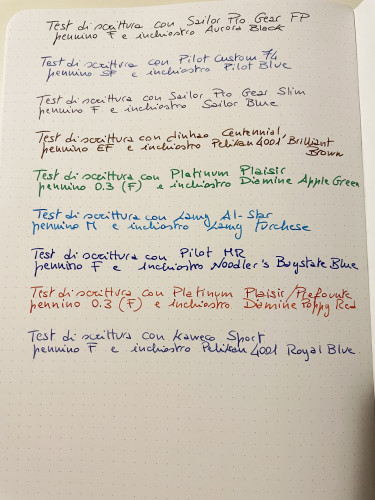 Test di scrittura con Sailor Pro Gear FP
pennino F e inchiostro Aurora Black
Test di scrittura con Pilot Custom 74
pennino SF e inchiostro Pilot Blue
Test di scrittura con Sailor Pro Gear Slim
pennino F e inchiostro Sailor Blue
Test di scrittura con dinhao Centennial,
pennino EF e inchiostro Pelikan 4001 Brilliant
Brown
Test di scrittura con Platinum Plaisir
pennino 0.3 (F) e inchiostro Diamine Apple Green
Test di scrittura con Lamy Al-Star
pennino M e inchiostro Lamy Turchese
Test di scrittura con Pilot MR
pennino F e inchiostro Noodler's Baystate Blue
Test di scrittura con Platinum Plaisir/Prefounte
pennino 0.3 (F) e inchiostro Diamine Poppy Red
Test di scrittura con Kaweco Sport
pennino F e inchiostro Pelikan 4001 Royal Blue.